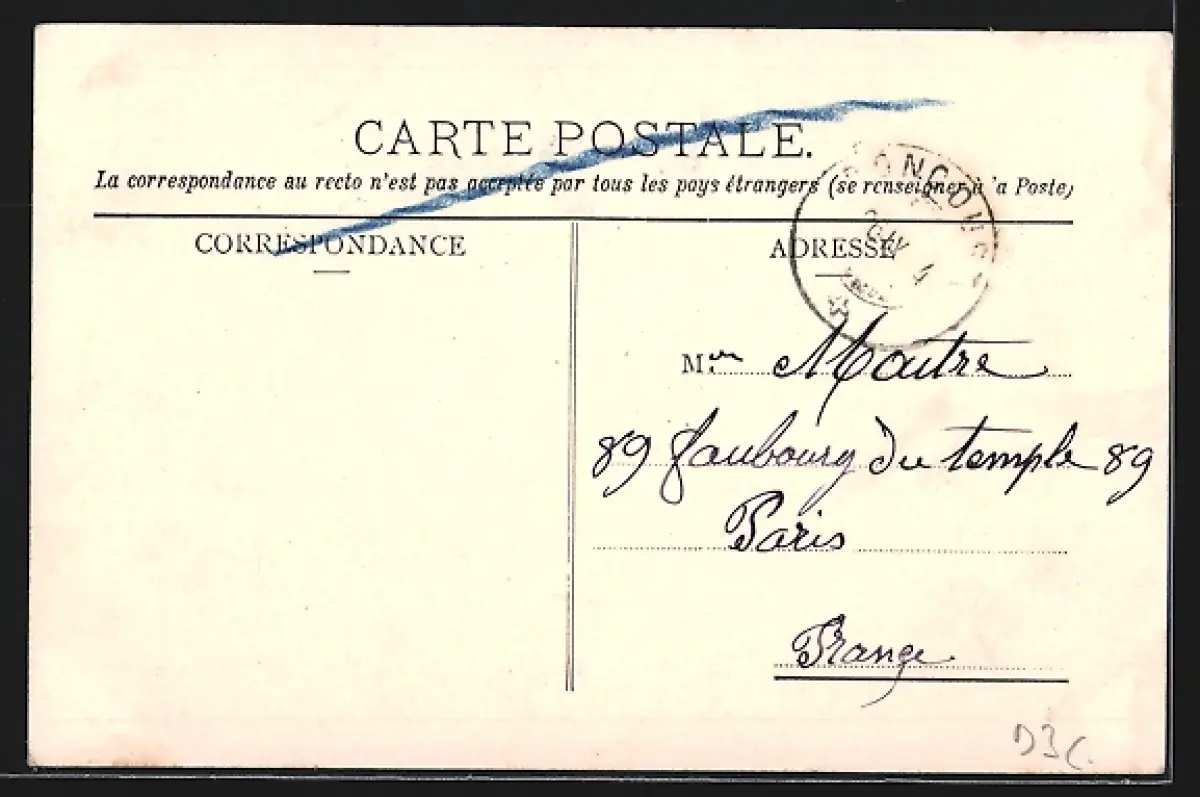 CARTE POSTALE.
La correspondance au recto n'est pas acceptée par tous les pays étrangers (se renseigner à 'a Poste)
CORRESPONDANCE
ADRESSE
M. Maitre
89 faubourg Du temple 89
Paris
Françe
D3C.